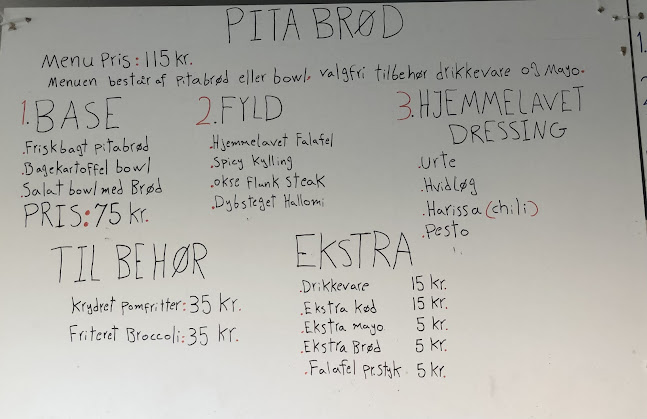 PITA BRØD
Menu Pris: 115 kr.
Menuen består af pitabrød eller bowl, valgfri tilbehør drikkevare og Mayo.
1. BASE
.Friskbagt pitabrød
.Bagekartoffel bowl
.Salat bowl med Brød
PRIS: 75 kr.
2. FYLD
.Hjemmelavet Falafel
.Spicy Kylling
.okse Flank steak
.Dybsteget Hallomi
3. HJEMMELAVET
DRESSING
.urte
.Hvidløg
.Harissa (chili)
.Pesto
TILBEHØR
Krydret pomfritter: 35 kr.
Friteret Broccoli: 35 kr.
EKSTRA
.Drikkevare 15 kr.
.Ekstra kød 15 kr.
.Ekstra Mayo 5 kr.
.Ekstra Brød 5 kr.
.Falafel pr.styk 5 kr.